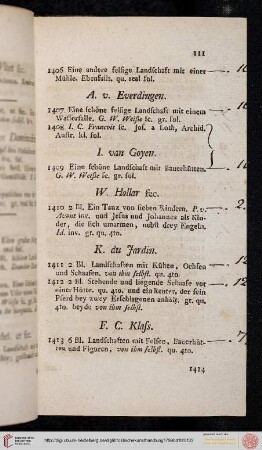 111
1406 Eine andere felsige Landschaft mit einer
Mühle. Ebenfalls. qu. real fol.
A. v. Everdingen.
1407 Eine schöne felsige Landschaft mit einem
Wasserfalle. G. W. Weisse sc. gr. fol.
1408 I. C. François sc. Jos. a Loth, Archid.
Austr. kl. fol.
I. van Goyen.
1409 Eine schöne Landschaft mit Bauerhütten.
G. W. Weisse sc. gr. fol.
W. Hollar fec.
1410 2 Bl. Ein Tanz von sieben Kindern. P. v.
Avont inv. und Jesus und Johannes als Kin-
der, die sich umarmen, nebst drey Engeln.
Id. inv. gr. qu. 4to.
K. du Jardin.
1411 2 Bl. Landschaften mit Kühen, Ochsen
und Schaafen. von ihm selbst. qu. 4to.
1412 2 Bl. Stehende und liegende Schaafe vor
einer Hütte. qu. 4to. und ein Reuter, der sein
Pferd bey zwey Erschlagenen anhält. gr. qu.
4to. beyde von ihm selbst.
F. C. Klass.
1413 6 Bl. Landschaften mit Felsen, Bauerhüt-
ten und Figuren, von ihm selbst. qu. 4to.
1414